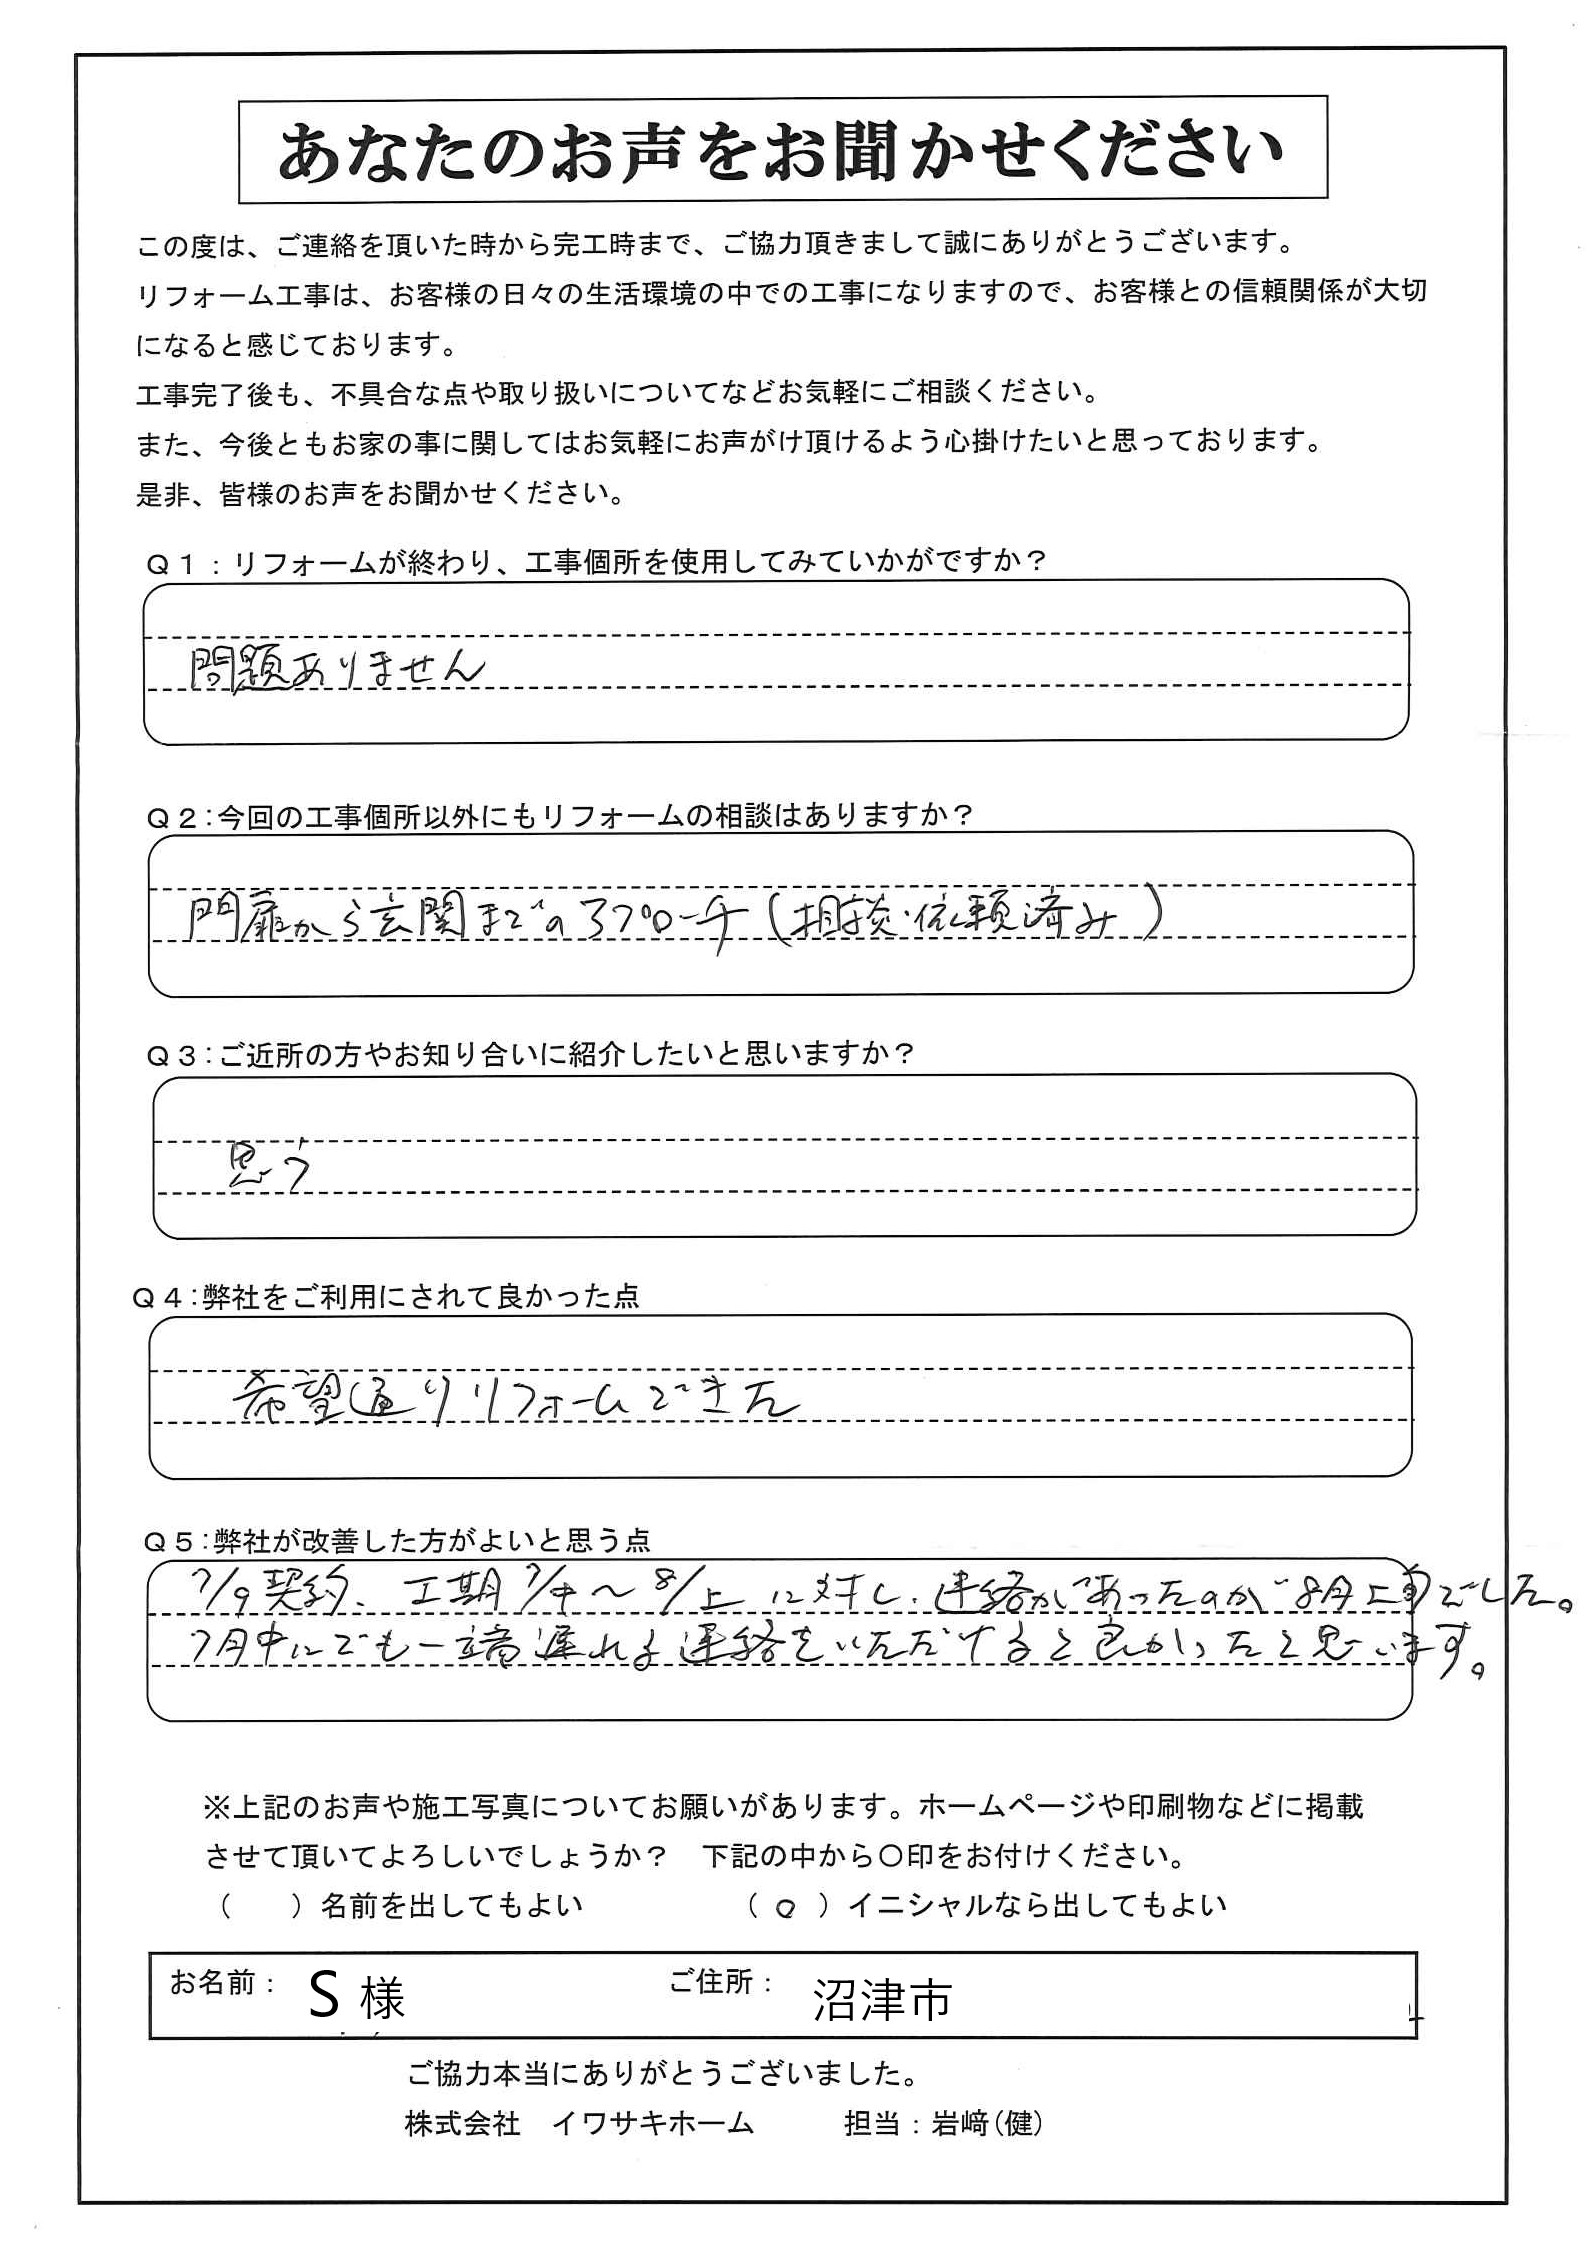 あなたのお声をお聞かせください
この度は、ご連絡を頂いた時から完工時まで、ご協力頂きまして誠にありがとうございます。
リフォーム工事は、お客様の日々の生活環境の中での工事になりますので、お客様との信頼関係が大切
になると感じております。
工事完了後も、不具合な点や取り扱いについてなどお気軽にご相談ください。
また、今後ともお家の事に関してはお気軽にお声がけ頂けるよう心掛けたいと思っております。
是非、皆様のお声をお聞かせください。
Q1：リフォームが終わり、工事個所を使用してみていかがですか？
問題ありません
Q2：今回の工事個所以外にもリフォームの相談はありますか？
門扉から玄関までのアプローチ（相談・依頼済み）
Q3：ご近所の方やお知り合いに紹介したいと思いますか？
思う
Q4：弊社をご利用にされて良かった点
希望通りリフォームできた
Q5：弊社が改善した方がよいと思う点
7/9契約、工期7/中～8/上に対し、連絡があったのが8月上旬でした。
7月中にでも一端遅れる連絡をいただけると良かったと思います。
※上記のお声や施工写真についてお願いがあります。ホームページや印刷物などに掲載
させて頂いてよろしいでしょうか？　下記の中から〇印をお付けください。
（　　）名前を出してもよい　　（ ○ ）イニシャルなら出してもよい
お名前：　S 様　　ご住所：　沼津市
ご協力本当にありがとうございました。
株式会社　イワサキホーム　　担当：岩﨑（健）